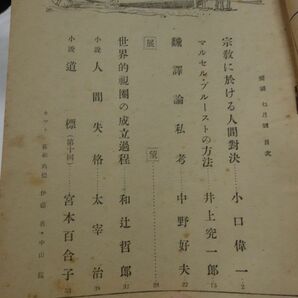 展望 七月號 目次
宗教に於ける人間對決……小口偉一…2
マルセル・プルーストの方法……井上究一郎…13
飜譯論私考……中野好夫…22
展望……28
世界的視圏の成立過程……和辻哲郎…31
小說 人間失格……太宰治…39
小說 道標（第十回）……宮本百合子…53
カット